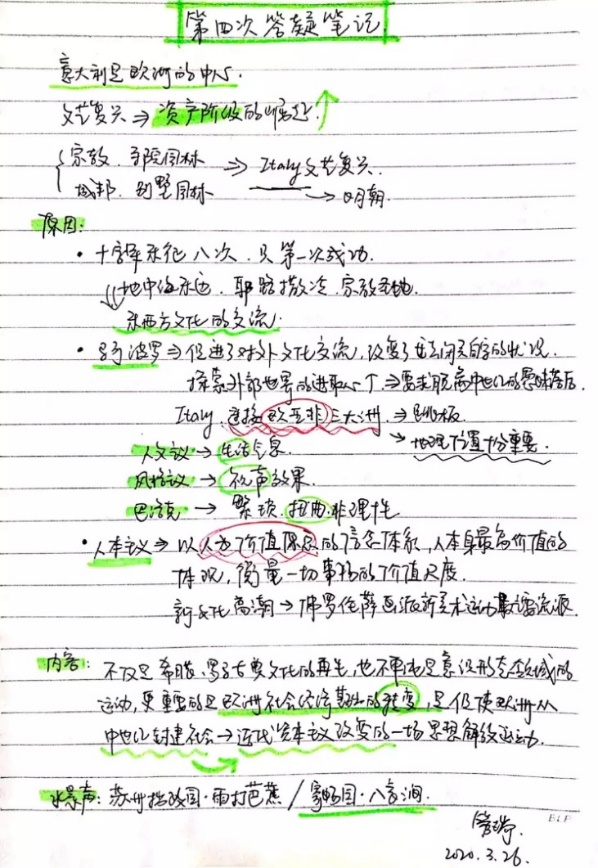 第四次答疑笔记
意大利是欧洲的中心.
文艺复兴⇒资产阶级的崛起↑
宗教 寺院园林 ⇒ Italy文艺复兴.
城邦. 别墅园林 → 明朝.
原因:
• 十字军东征 八次. 只第一次成功.
⇓地中海东边. 耶路撒冷. 宗教圣地.
东西方文化的交流.
• 波罗⇒促进了对外文化交流, 改变了封闭的状况.
探索外部世界的进取心↑. ⇒要求脱离中世纪的愚昧落后
Italy. 连接欧亚非三大洲 → 跳板
→ 地理位置十分重要.
人文主义 → 生活气息.
风格主义 → 效果.
巴洛克 → 繁琐. 扭曲. 非理性
• 人本主义 → 以人为价值的信念体系, 人本身最高价值的
体现, 衡量一切事物的价值尺度.
新文化高潮 → 佛罗伦萨画派新美术运动最流派.
内容: 不仅是希腊、罗马古典文化的再生, 也不单纯是意识形态领域的
运动, 更重要的是欧洲社会经济基础的转变, 是促使欧洲从
中世纪封建社会→近代资本主义改变的一场思想解放运动.
水景声: 苏州拙政园·雨打芭蕉 / 寄畅园·八音涧.
2020.3.26.